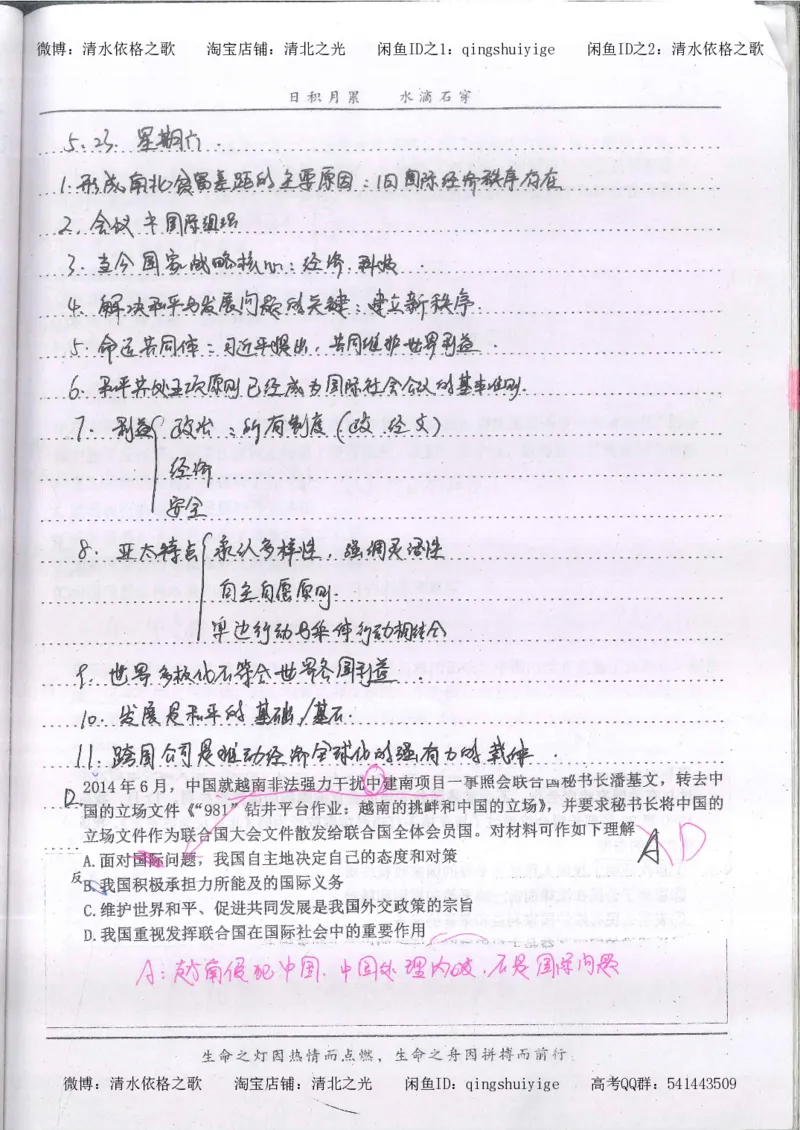 微博：清水依格之歌 淘宝店铺：清北之光 闲鱼ID之1：qingshuiyige 闲鱼ID之2：清水依格之歌
日积月累 水滴石穿
5.23. 星期六.
1.形成南北贫富差距的主要原因：旧国际经济秩序存在
2.会议≠国际组织
3.当今国家战略核心：经济.科技.
4.解决和平与发展问题的关键：建立新秩序.
5.命运共同体：习近平提出，共同维护世界利益.
6.和平共处五项原则已经成为国际社会公认的基本准则.
7.利益 政治：所有制度（政 经 文）
经济
安全
8.亚太特点 承认多样性，强调灵活性
自主自愿原则.
单边行动与集体行动相结合
9.世界多极化不符合世界各国利益
10.发展是和平的基础/基石.
11.跨国公司是推动经济全球化的强有力的载体.
12. 2014年6月，中国就越南非法强力干扰中建南项目一事照会联合国秘书长潘基文，转去中
国的立场文件《“981”钻井平台作业：越南的挑衅和中国的立场》，并要求秘书长将中国的
立场文件作为联合国大会文件散发给联合国全体会员国。对材料可作如下理解 A D
A.面对国际问题，我国自主地决定自己的态度和对策
反 B.我国积极承担力所能及的国际义务
C.维护世界和平、促进共同发展是我国外交政策的宗旨
D.我国重视发挥联合国在国际社会中的重要作用
A：越南侵犯中国.中国处理内政.不是国际问题
生命之灯因热情而点燃，生命之舟因拼搏而前行
微博：清水依格之歌 淘宝店铺：清北之光 闲鱼ID：qingshuiyige 高考QQ群：541443509